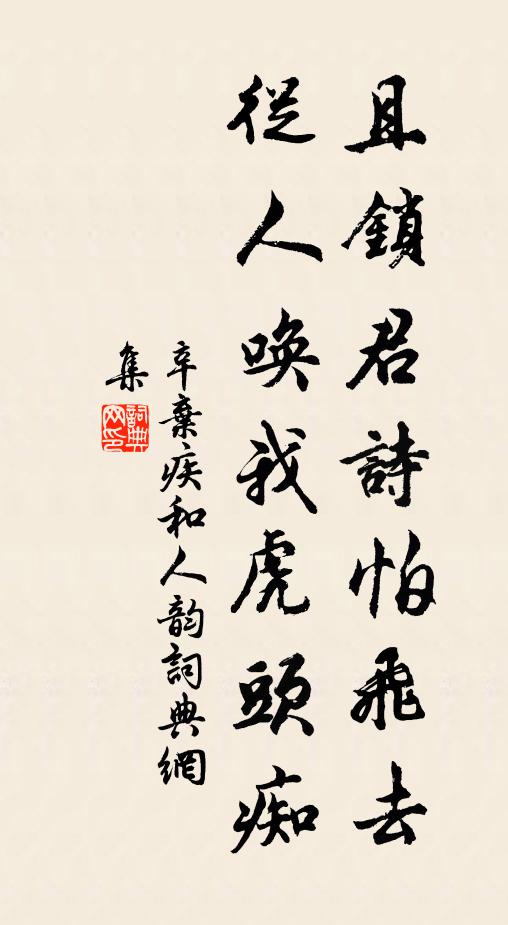 且鎖君詩怕飛去
從人喚我虎頭痴
辛棄疾和人韵詞典網
集
詞典网印